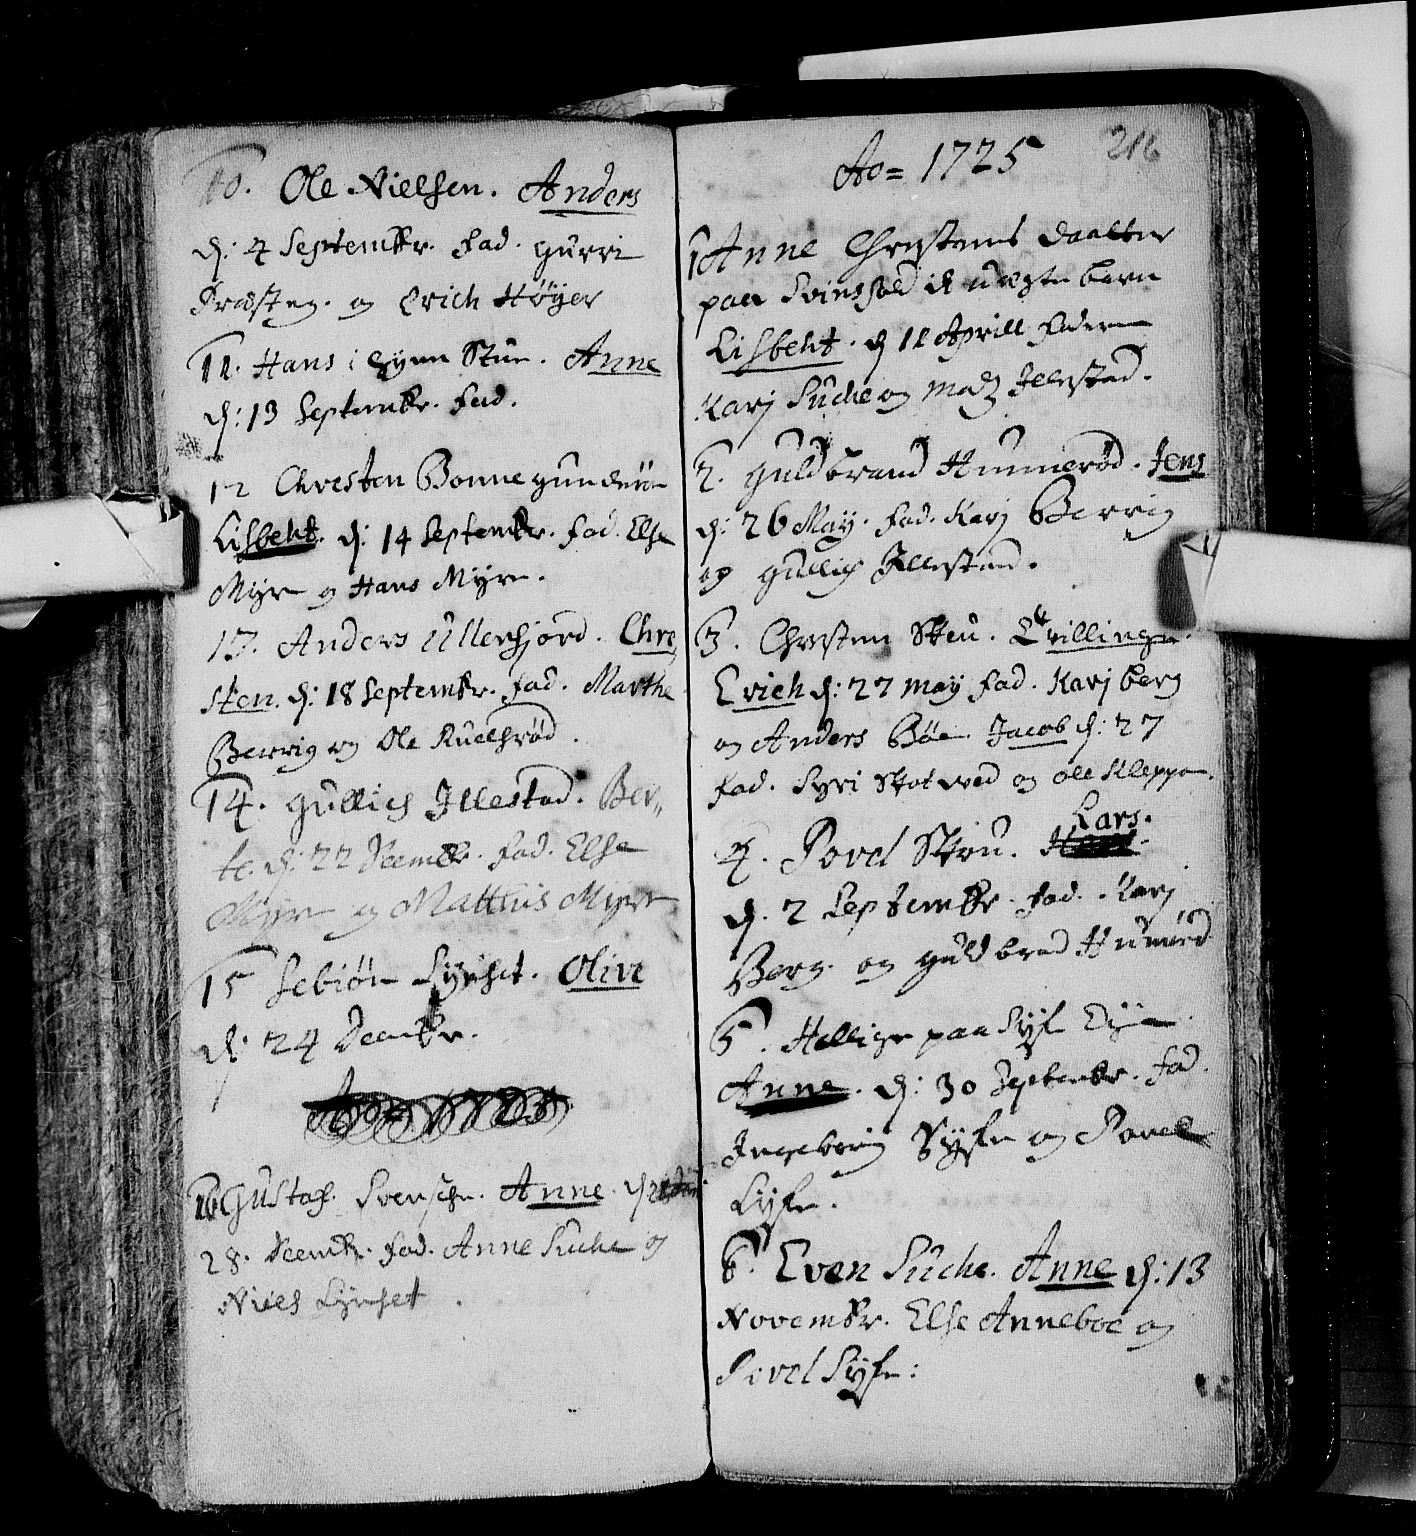 10. Ole Nielsen. Anders
d: 4 Septembr. fad. Gurri
Præsteg. og Erich Høyer
11. Hans i Stue. Anne
d: 13 Septembr. fad.
12 Christen Bonnegunderø
Lisbeht. d: 14 Septembr. fad. Else
Myre og Hans Myre.
13. Anders Ullersfjord. Chre,
sten. d: 18 Septembr. fad. Marthe
Berrig og Ole Ruelsrød.
14. Gullich Illestad. Ber,,
te. d: 22 Decembr. fad. Else
Myre og Matthis Myre
15 Sebiørn Lynset. Olive
d: 24 Decembr.
Ao= 1725
16 Gustaf Svensøn. Anne. d:
28. Decembr. fad. Anne Suche og
Niels Lynset.
216
Ao= 1725
1 Anne Christens daatter
paa it uægte barn
Lisbeht. d 11 Aprill faderne
Karj Suche og Mads Illestad.
2. Guldbrand Hummerød. Jens
d: 26 May. fad. Karj Berrig
og Gullich Illestad.
3. Christen Skou. Tvillinger.
Erich d: 27 may fad. Karj berg
og Anders Bøe. Jacob d: 27
fad. Syri Skotvred og Ole Kleppen.
Lars.
4. Povel Skou.
d. 2 Septembr. fad. Karj
Berg. og Guldbrad Humerød
5. Hellige paa Syfe Eye
Anne. d: 30 Septembr. fad.
Ingeborig Syfe og Povel
Syfe.
6. Even Suche. Anne d: 13
Novembr. Else Anneboe og
Povel Syfe: